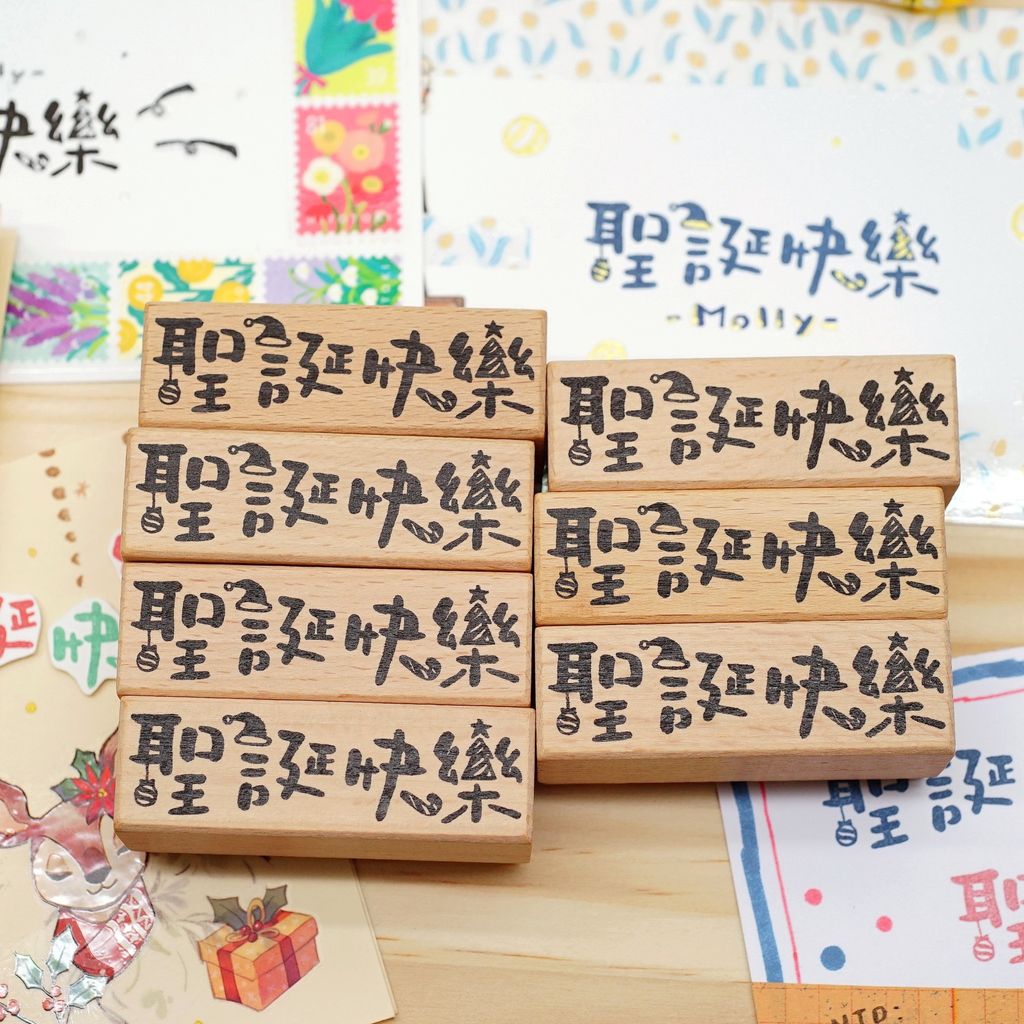 快樂
聖誕快樂
-Molly-
聖誕快樂
聖誕快樂
聖誕快樂
聖誕快樂
聖誕快樂
聖誕快樂
聖誕快樂
誕
快
聖誕
聖